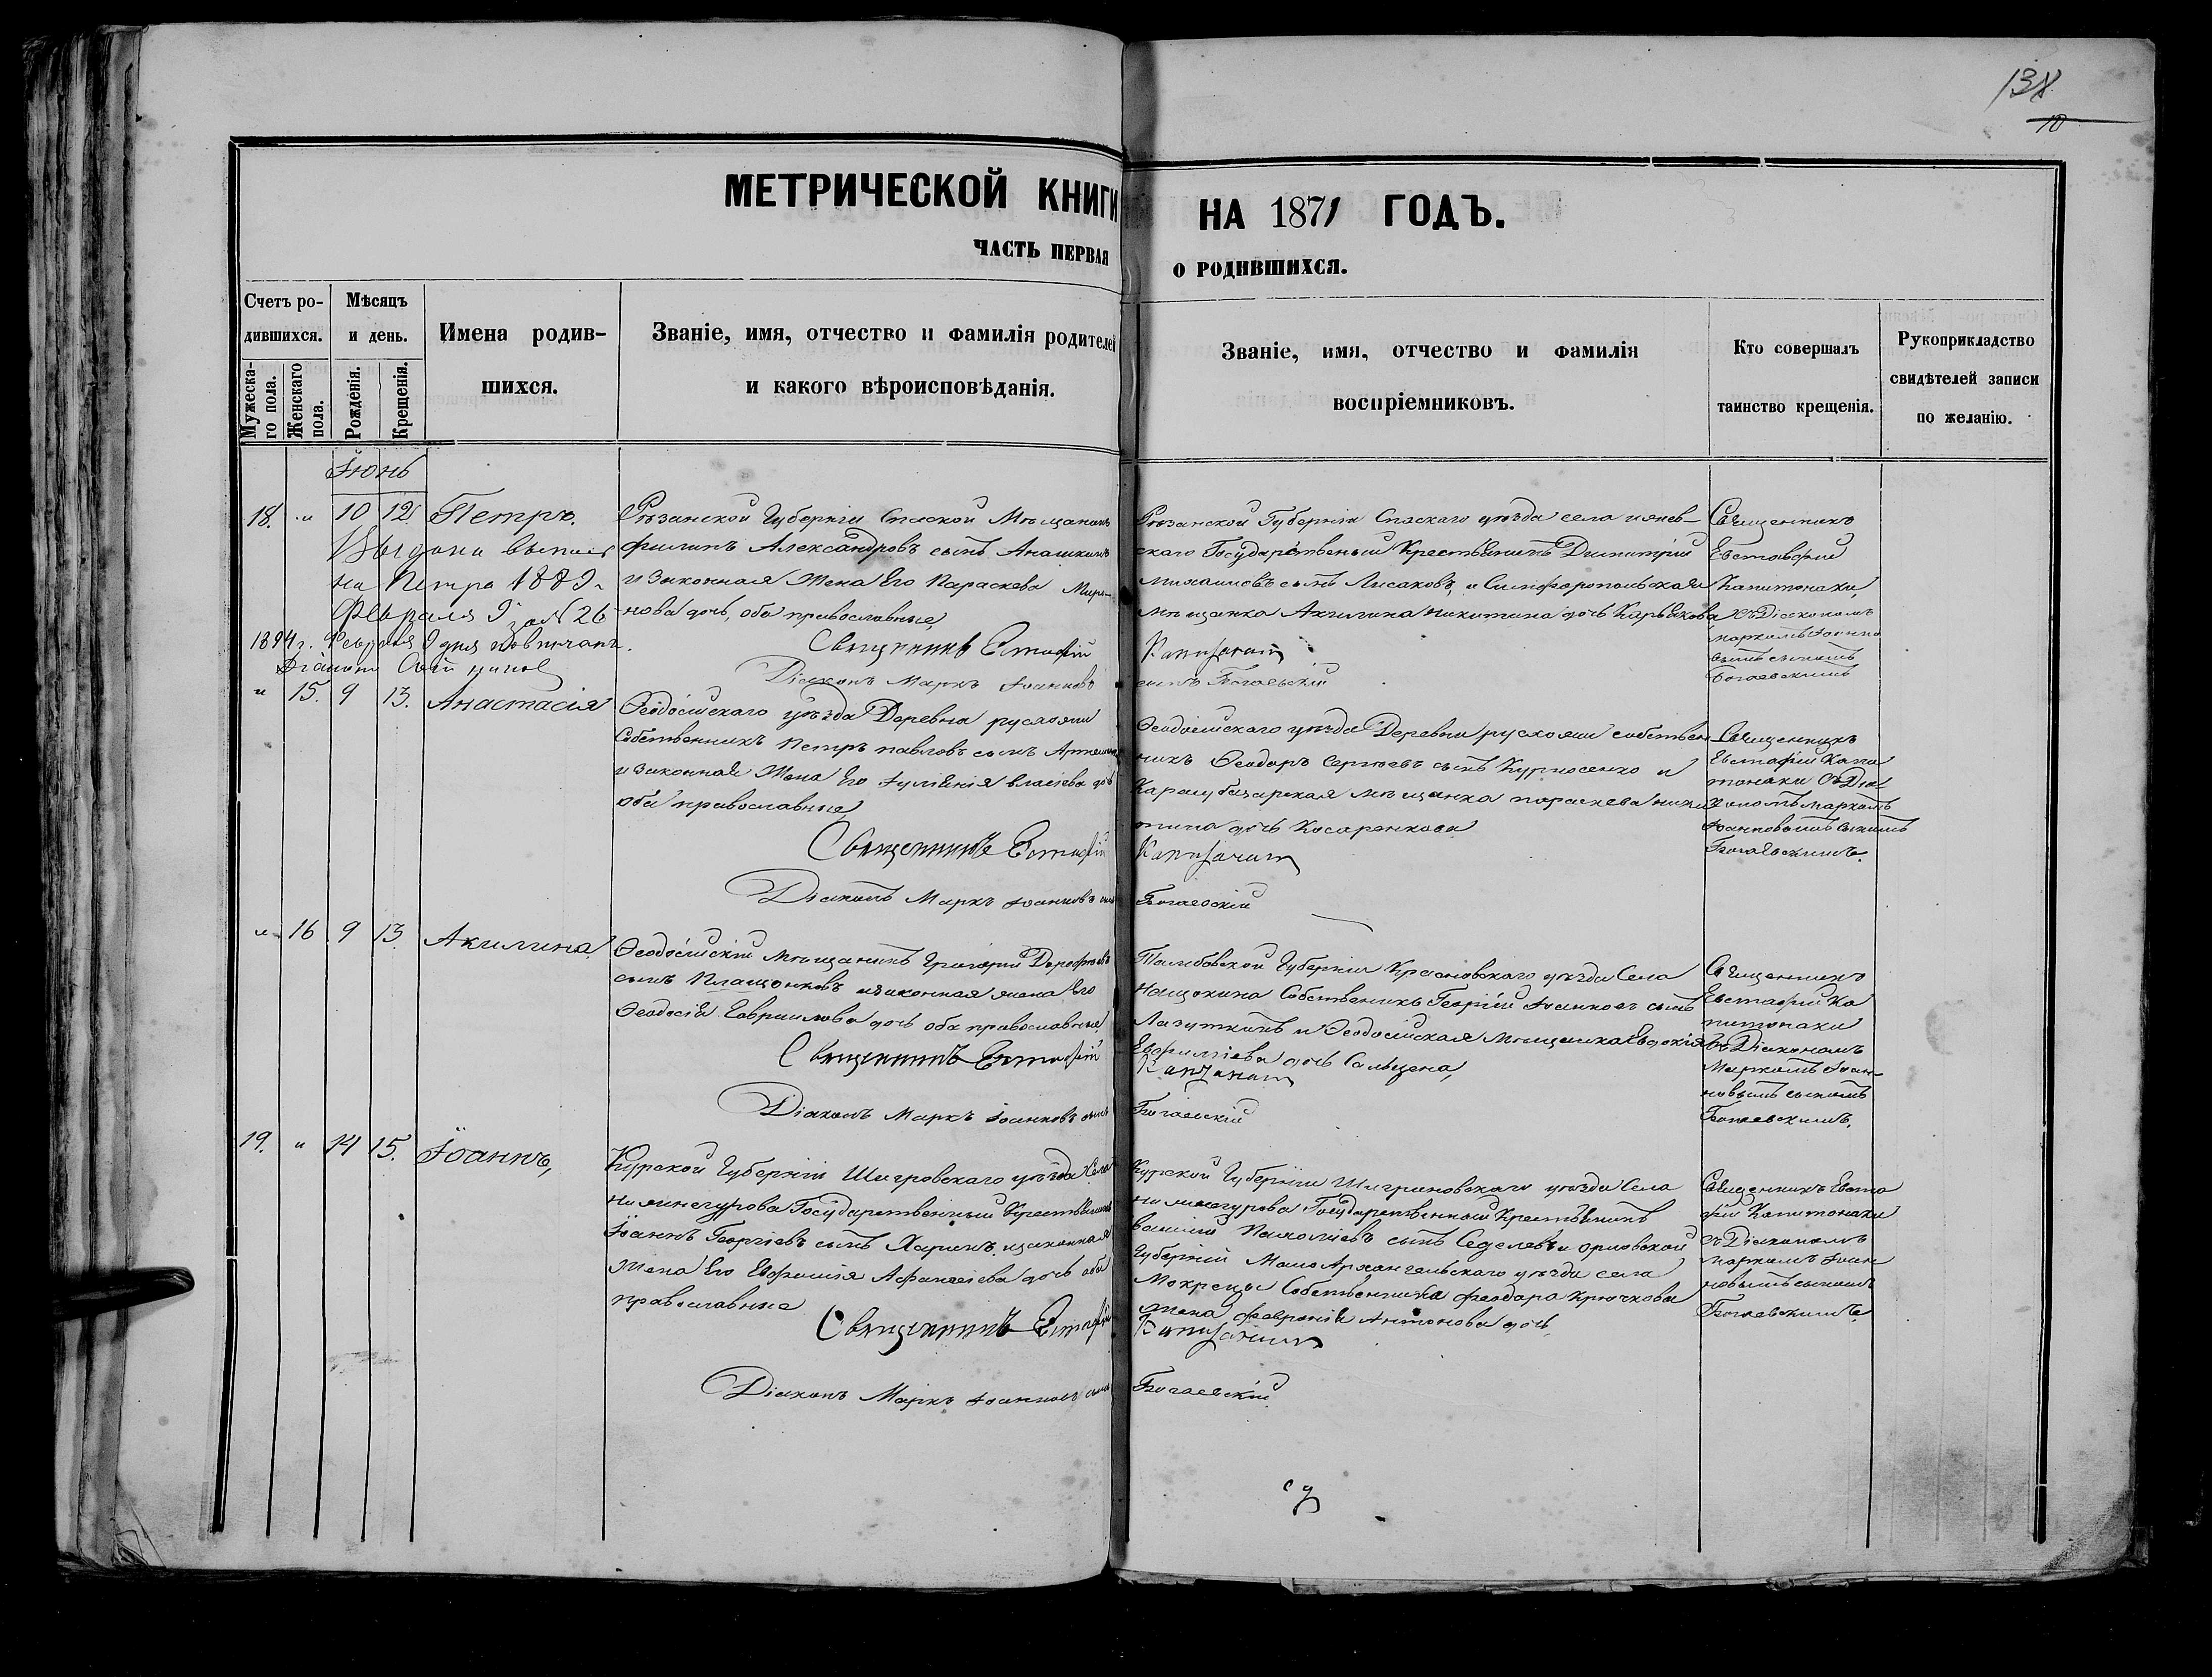 138
10
МЕТРИЧЕСКОЙ КНИГИ НА 1871 ГОДЪ.
ЧАСТЬ ПЕРВАЯ О РОДИВШИХСЯ.
Счетъ родившихся.
Мужеска-
го пола.
Женскаго
пола.
Мѣсяцъ
и день.
Рожденія.
Крещенія.
Имена родив-
шихся.
Званіе, имя, отчество и фамилія родителей
и какого вѣроисповѣданія.
Званіе, имя, отчество и фамилія
воспріемниковъ.
Кто совершалъ
таинство крещенія.
Рукоприкладство
свидѣтелей записи
по желанію.
Іюнь
18. " 10 12 Петръ.
Выдана выпись
на Петра 1889 г
Февраля 9 за N 26
1894 г. Февраля 9 дня повѣнчанъ.
Рязанской Губерніи Спаской Мѣщанинъ
Филипъ Александровъ сынъ Анашкинъ
и законная Жена Его Параскева Миро-
нова дочь, оба православные,
Священникъ Евстафій
Діаконъ Маркъ Іоанновъ
Рязанской Губерніи Спаскаго уѣзда села
скаго Государственый Крестьянинъ Димитрій
Михаиловъ сынъ Лисаковъ, и Симферопольская
мѣщанка Акилина Никитина дочь Карьякова
сынъ Богаевскій
Священникъ
Евстафій
Капитонаки,
съ Діакономъ
Маркомъ Іоанно
вымъ сыномъ
Богаевскимъ
" 15. 9 13. Анастасія
Ѳеодосійскаго уѣзда Деревни
Собственникъ Петръ Павловъ сынъ
и законная Жена Его Іуліанія Власіева дочь
оба православные,
Священникъ Евстафій
Діаконъ Маркъ Іоанновъ сынъ
Ѳеодосійскаго уѣзда Деревни собствен-
никъ Ѳеодоръ Сергѣевъ сынъ Курносенко и
Карасубазарская мѣщанка Параскева Ники
тина дочь Косаренкова
Богаевскій
Священникъ
Евстафій Капи
тонаки съ Діа
кономъ Маркомъ
Іоанновымъ сыномъ
Богаевскимъ.
" 16 9 13. Акилина,
Ѳеодосійскій Мѣщанинъ Григорій Дорофѣевъ
сынъ Плащонковъ и законная жена Его
Ѳеодосія Гавриилова дочь оба православные,
Священникъ Евстафій
Діаконъ Маркъ Іоанновъ сынъ
Тамбовской Губерніи уѣзда Села
Нащокина Собственникъ Георгій Іоанновъ сынъ
Лазуткинъ и Ѳеодосійская Мѣщанка Евдокія
дочь
Богаевскій
Священникъ
Евстафій Ка
питонаки
съ Діакономъ
Маркомъ Іоан-
новымъ сыномъ
Богаевскимъ.
19. " 14 15. Іоаннъ,
Курской Губерніи Щигровскаго уѣзда Села
Государственный Крестьянинъ
Іоаннъ Георгіевъ сынъ Харинъ, и законная
Жена Его Евфимія Афанасіева дочь оба
православные
Священникъ Евстафій
Діаконъ Маркъ Іоанновъ сынъ
Курской Губерніи уѣзда Села
Государственный Крестьянинъ
сынъ и Орловской
Губерніи Мало Архангельскаго уѣзда села
Мокрецы Собственника Феодора Крючкова
жена Февронія Антонова дочь,
Богаевскій
Священникъ Евста
фій Капитонаки
съ Діакономъ
Маркомъ Іоан
новымъ сыномъ
Богаевскимъ.